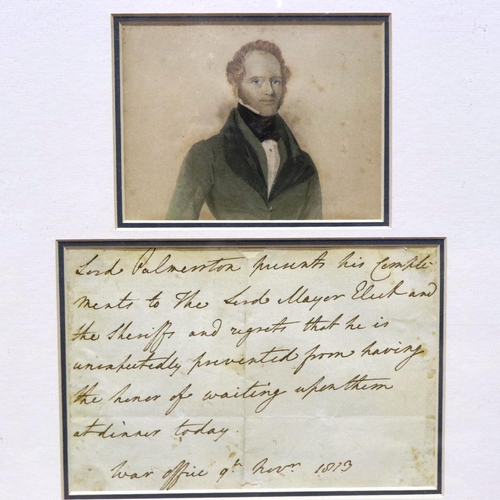 Lord Palmerston presents his Compli
ments to The Lord Mayor Elect and
the Sheriffs and regrets that he is
unexpectedly prevented from having
the honor of waiting upon them
at dinner today.
War office 9th Novr 1813